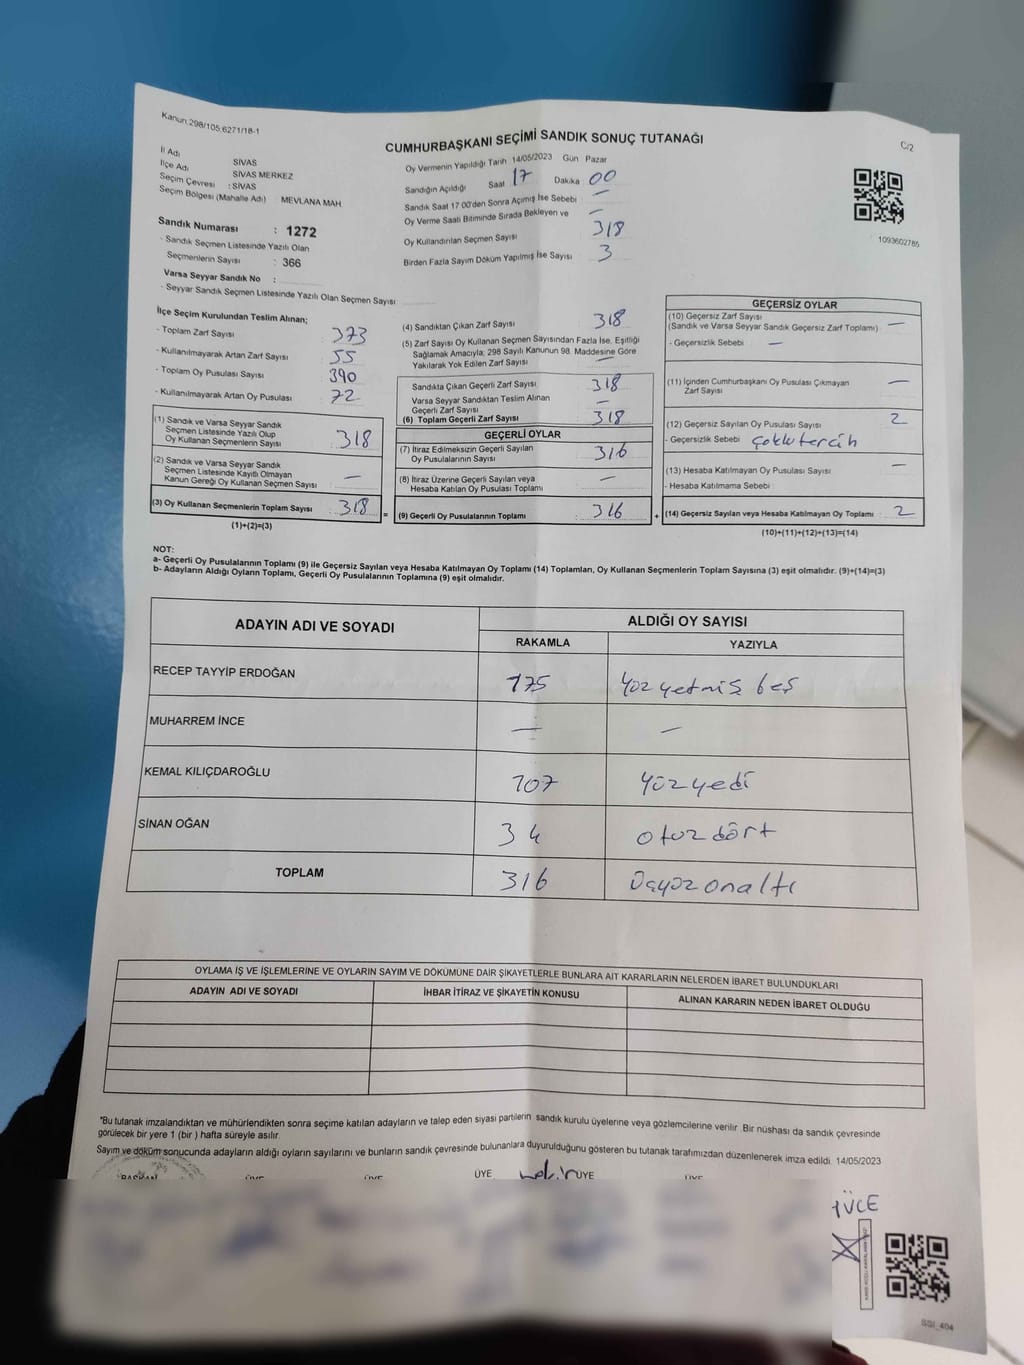 Kanun:298/105,6271/18-1
CUMHURBAŞKANI SEÇİMİ SANDIK SONUÇ TUTANAĞI
C/2
İl Adı SİVAS
İlçe Adı SİVAS MERKEZ
Seçim Çevresi : SİVAS
Seçim Bölgesi (Mahalle Adı) MEVLANA MAH.
Sandık Numarası : 1272
- Sandık Seçmen Listesinde Yazılı Olan
Seçmenlerin Sayısı : 366
Varsa Seyyar Sandık No :
- Seyyar Sandık Seçmen Listesinde Yazılı Olan Seçmen Sayısı
Oy Vermenin Yapıldığı Tarih 14/05/2023 Gün Pazar
Sandığın Açıldığı Saat 17 Dakika 00
Sandık Saat 17:00'den Sonra Açımış İse Sebebi —
Oy Verme Saati Bitiminde Sırada Bekleyen ve —
Oy Kullandırılan Seçmen Sayısı 318
Birden Fazla Sayım Döküm Yapılmış İse Sayısı 3
1093602785
İlçe Seçim Kurulundan Teslim Alınan;
- Toplam Zarf Sayısı 373
- Kullanılmayarak Artan Zarf Sayısı 55
- Toplam Oy Pusulası Sayısı 390
- Kullanılmayarak Artan Oy Pusulası 72
(1) Sandık ve Varsa Seyyar Sandık
Seçmen Listesinde Yazılı Olup
Oy Kullanan Seçmenlerin Sayısı 318
(2) Sandık ve Varsa Seyyar Sandık
Seçmen Listesinde Kayıtlı Olmayan
Kanun Gereği Oy Kullanan Seçmen Sayısı —
(3) Oy Kullanan Seçmenlerin Toplam Sayısı 318 =
(1)+(2)=(3)
(4) Sandıktan Çıkan Zarf Sayısı 318
(5) Zarf Sayısı Oy Kullanan Seçmen Sayısından Fazla İse, Eşitliği
Sağlamak Amacıyla; 298 Sayılı Kanunun 98. Maddesine Göre
Yakılarak Yok Edilen Zarf Sayısı —
Sandıkta Çıkan Geçerli Zarf Sayısı 318
Varsa Seyyar Sandıktan Teslim Alınan
Geçerli Zarf Sayısı —
(6) Toplam Geçerli Zarf Sayısı 318
GEÇERLİ OYLAR
(7) İtiraz Edilmeksizin Geçerli Sayılan
Oy Pusulalarının Sayısı 316
(8) İtiraz Üzerine Geçerli Sayılan veya
Hesaba Katılan Oy Pusulası Toplamı —
(9) Geçerli Oy Pusulalarının Toplamı : 316 +
GEÇERSİZ OYLAR
(10) Geçersiz Zarf Sayısı
(Sandık ve Varsa Seyyar Sandık Geçersiz Zarf Toplamı) —
- Geçersizlik Sebebi : —
(11) İçinden Cumhurbaşkanı Oy Pusulası Çıkmayan
Zarf Sayısı —
(12) Geçersiz Sayılan Oy Pusulası Sayısı 2
- Geçersizlik Sebebi çoklu tercih
(13) Hesaba Katılmayan Oy Pusulası Sayısı —
- Hesaba Katılmama Sebebi :
(14) Geçersiz Sayılan veya Hesaba Katılmayan Oy Toplamı : 2
(10)+(11)+(12)+(13)=(14)
NOT:
a- Geçerli Oy Pusulalarının Toplamı (9) ile Geçersiz Sayılan veya Hesaba Katılmayan Oy Toplamı (14) Toplamları, Oy Kullanan Seçmenlerin Toplam Sayısına (3) eşit olmalıdır. (9)+(14)=(3)
b- Adayların Aldığı Oyların Toplamı, Geçerli Oy Pusulalarının Toplamına (9) eşit olmalıdır.
ADAYIN ADI VE SOYADI ALDIĞI OY SAYISI
RAKAMLA YAZIYLA
RECEP TAYYİP ERDOĞAN 175 Yüz yetmiş beş
MUHARREM İNCE — —
KEMAL KILIÇDAROĞLU 107 Yüz yedi
SİNAN OĞAN 34 otuz dört
TOPLAM 316 Üçyüz onaltı
OYLAMA İŞ VE İŞLEMLERİNE VE OYLARIN SAYIM VE DÖKÜMÜNE DAİR ŞİKAYETLERLE BUNLARA AİT KARARLARIN NELERDEN İBARET BULUNDUKLARI
ADAYIN ADI VE SOYADI İHBAR İTİRAZ VE ŞİKAYETİN KONUSU ALINAN KARARIN NEDEN İBARET OLDUĞU
*Bu tutanak imzalandıktan ve mühürlendikten sonra seçime katılan adayların ve talep eden siyasi partilerin sandık kurulu üyelerine veya gözlemcilerine verilir. Bir nüshası da sandık çevresinde
görülecek bir yere 1 (bir ) hafta süreyle asılır.
Sayım ve döküm sonucunda adayların aldığı oyların sayılarını ve bunların sandık çevresinde bulunanlara duyurulduğunu gösteren bu tutanak tarafımızdan düzenlenerek imza edildi. 14/05/2023
BAŞKAN ÜYE ÜYE ÜYE ÜYE ÜYE
SSI_404